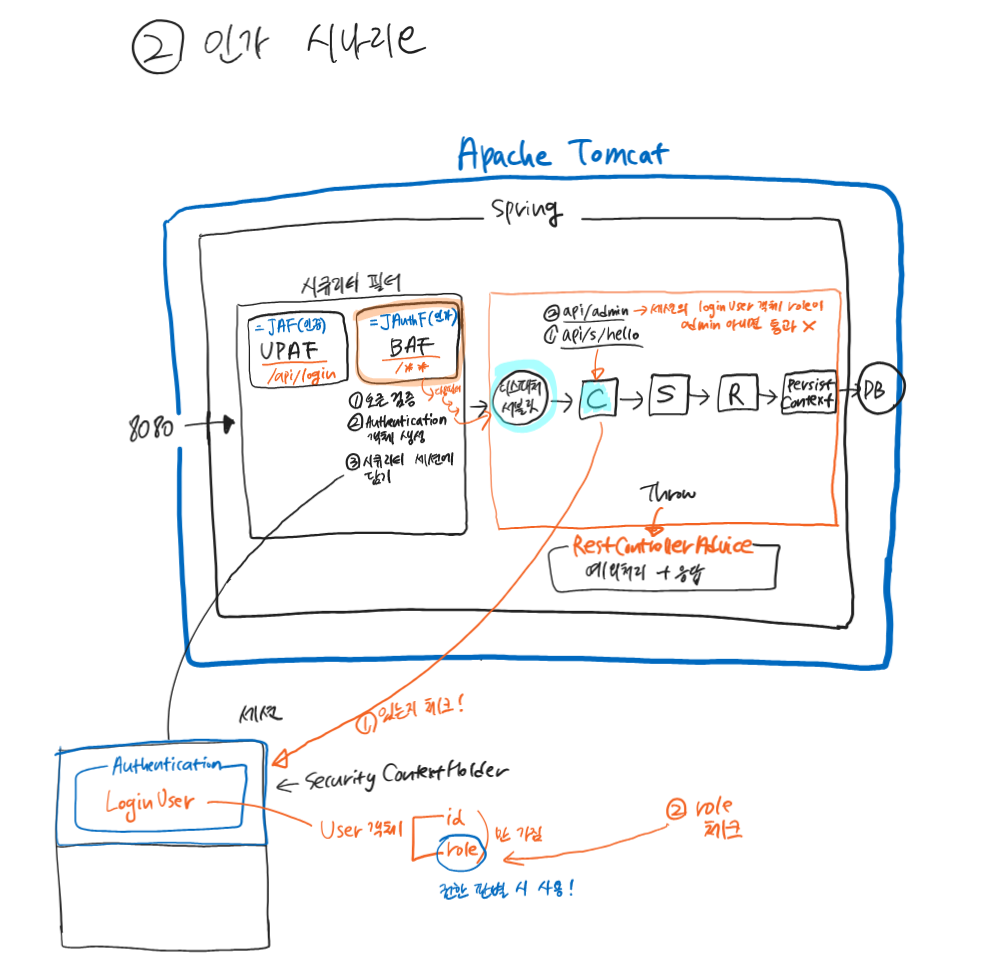 ② 인가 시나리오
Apache Tomcat
Spring
시큐리티 필터
= JAF(인증)
UPAF
/api/login
= JAuthF(인가)
BAF
/**
① 토큰 검증
② Authentication
객체 생성
③ 시큐리티 세션에
담기
8080
② api/admin → 세션의 loginUser 객체 role이
admin 아니면 통과 X
① api/s/hello
디스패처
서블릿
C
S
R
Persist
Context
DB
Throw
RestControllerAdvice
예외처리 + 응답
세션
① 있는지 체크!
Authentication
LoginUser
← Security ContextHolder
User 객체
id
role
만 가짐
② role
체크
권한 판별 시 사용!